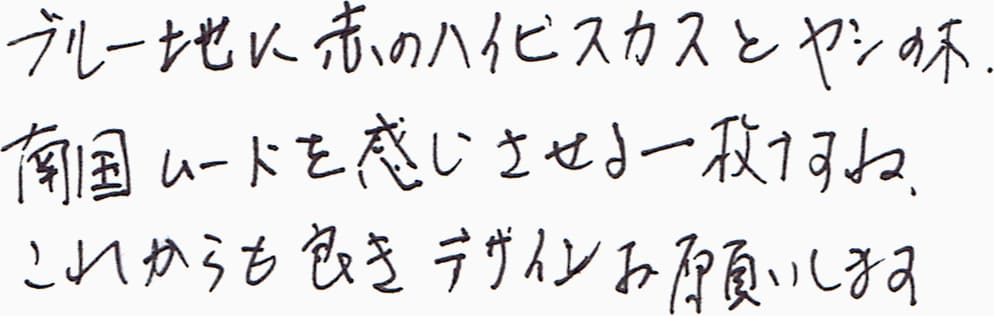 ブルー地に赤のハイビスカスとヤシの木.
南国ムードを感じさせる一枚ですね、
これからも良きデザインお願いします